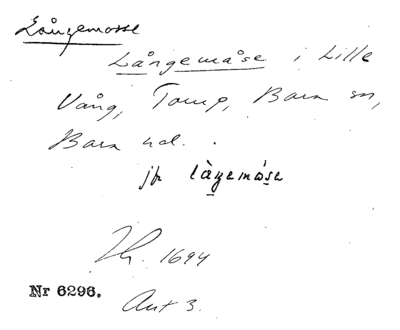 Långemosse
Långemåse i Lille
Vång, Tomp, Bara sn,
Bara hd.
jfr làŋemòse
Th. 1694
Nr 6296.
Ant 3.